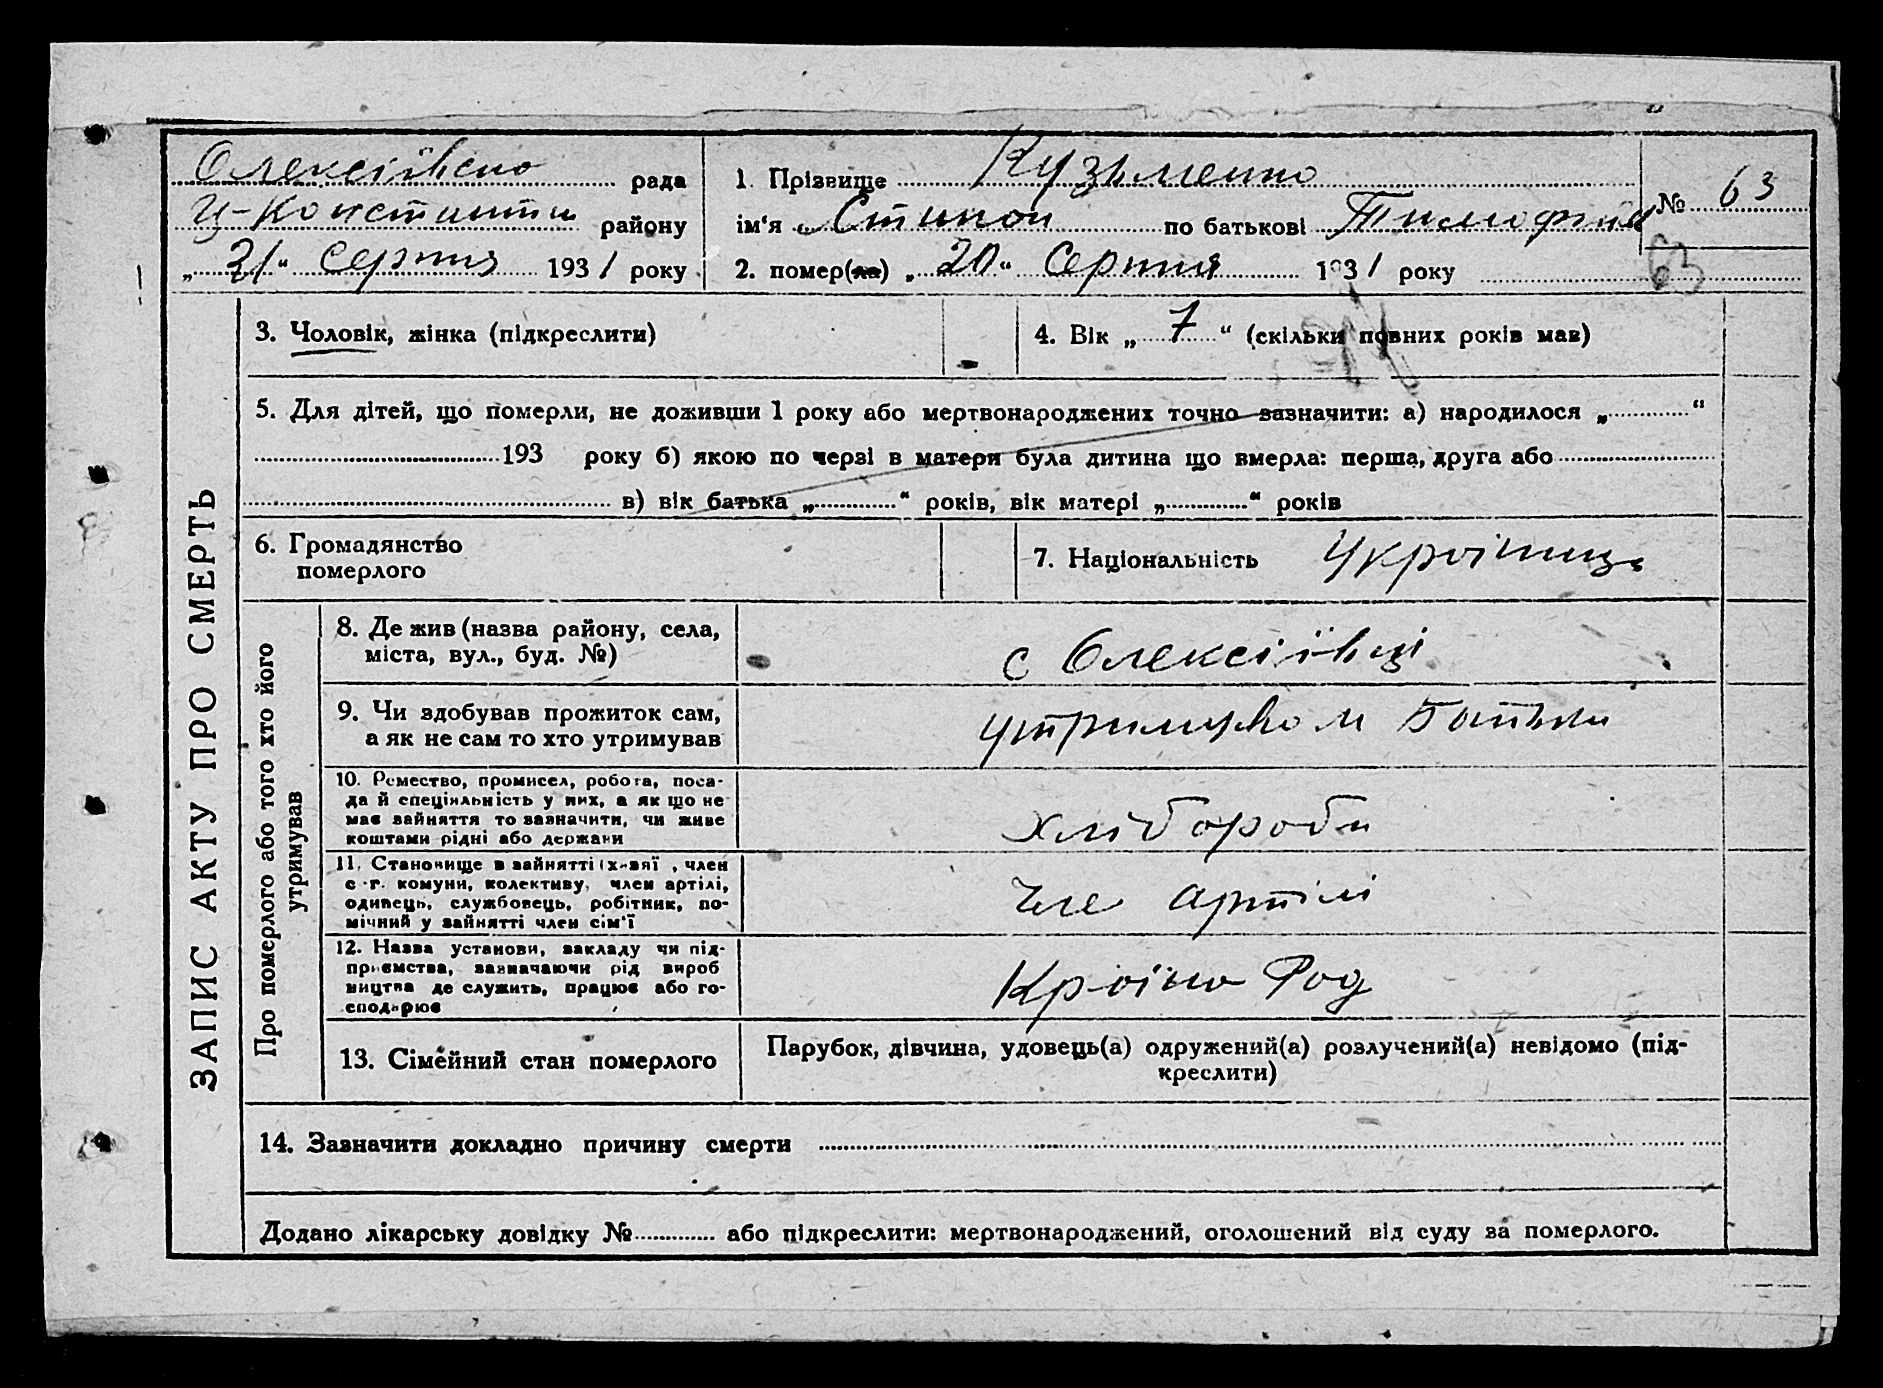 Олексіївсько рада
Ц-Константи району
„ 31 “ Серпня 1931 року
1. Прізвище Кузьменко
ім‘я Степан по батькові Тимофій
2. помер(ла) „ 20 “ Серпня 1931 року
№ 63
63
ЗАПИС АКТУ ПРО СМЕРТЬ
3. Чоловік, жінка (підкреслити)
4. Вік „ 7 “ (скільки повних років мав)
5. Для дітей, що померли, не доживши 1 року або мертвонароджених точно зазначити: а) народилося „ “
193 року б) якою по черзі в матери була дитина що вмерла: перша, друга або
в) вік батька „ “ років, вік матері „ “ років
6. Громадянство
померлого
7. Національність Україниць
Про померлого або того хто його
утримував
8. Де жив (назва району, села,
міста, вул., буд. №)
с Олексіївці
9. Чи здобував прожиток сам,
а як не сам то хто утримував
утримував Батько
10. Ремество, промисел, робота, поса-
да й спеціяльність у них, а як що не
має зайняття то зазначити, чи живе
коштами рідні або держави
хлібороби
11. Становище в зайнятті , член
с.-г. комуни, колективу, член артілі,
одинець, службовець, робітник, по-
мічний у зайнятті член сім‘ї
Чле артілі
12. Назва установи, закладу чи під-
приємства, зазначаючи рід вироб
ництва де служить, працює або го-
сподарює
Країна Рад
13. Сімейний стан померлого
Парубок, дівчина, удовець(а) одружений(а) розлучений(а) невідомо (під-
креслити)
14. Зазначити докладно причину смерти
Додано лікарську довідку № або підкреслити: мертвонароджений, оголошений від суду за померлого.